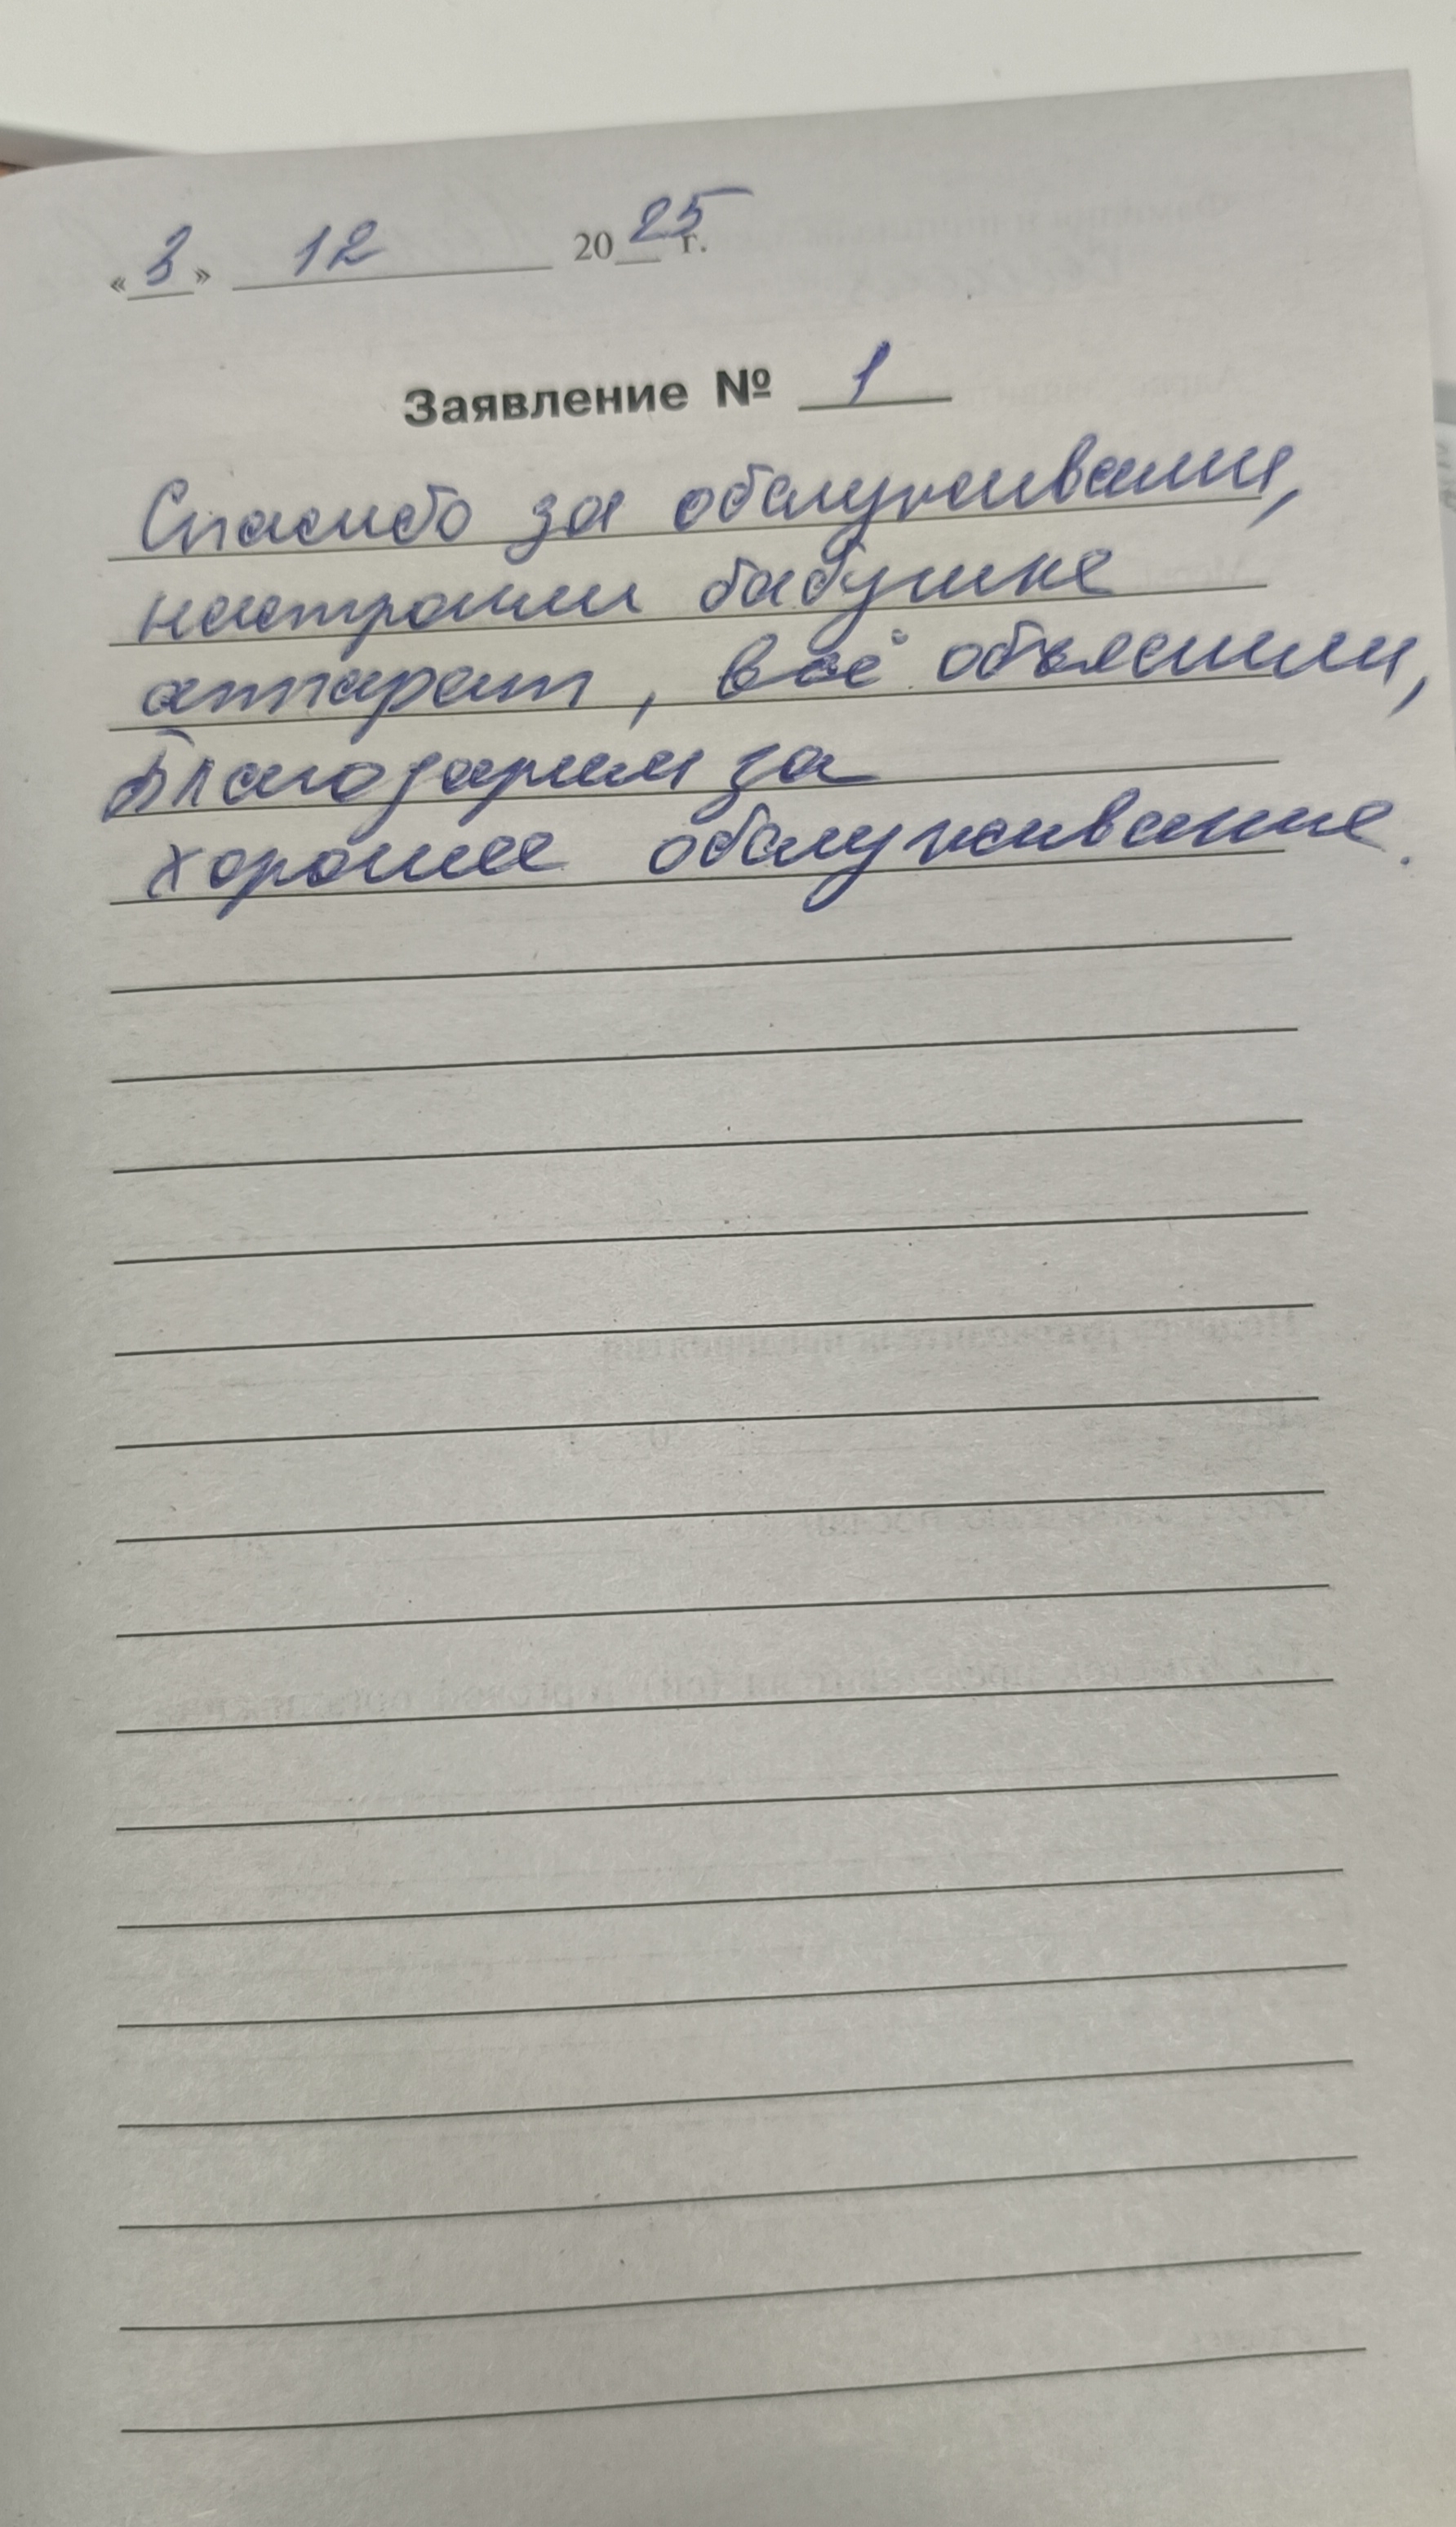 «3» 12 2025 г.
Заявление № 1
Спасибо за обслуживании,
настроили бабушке
аппарат, всё объяснили,
Благодарим за
хорошее обслуживание.